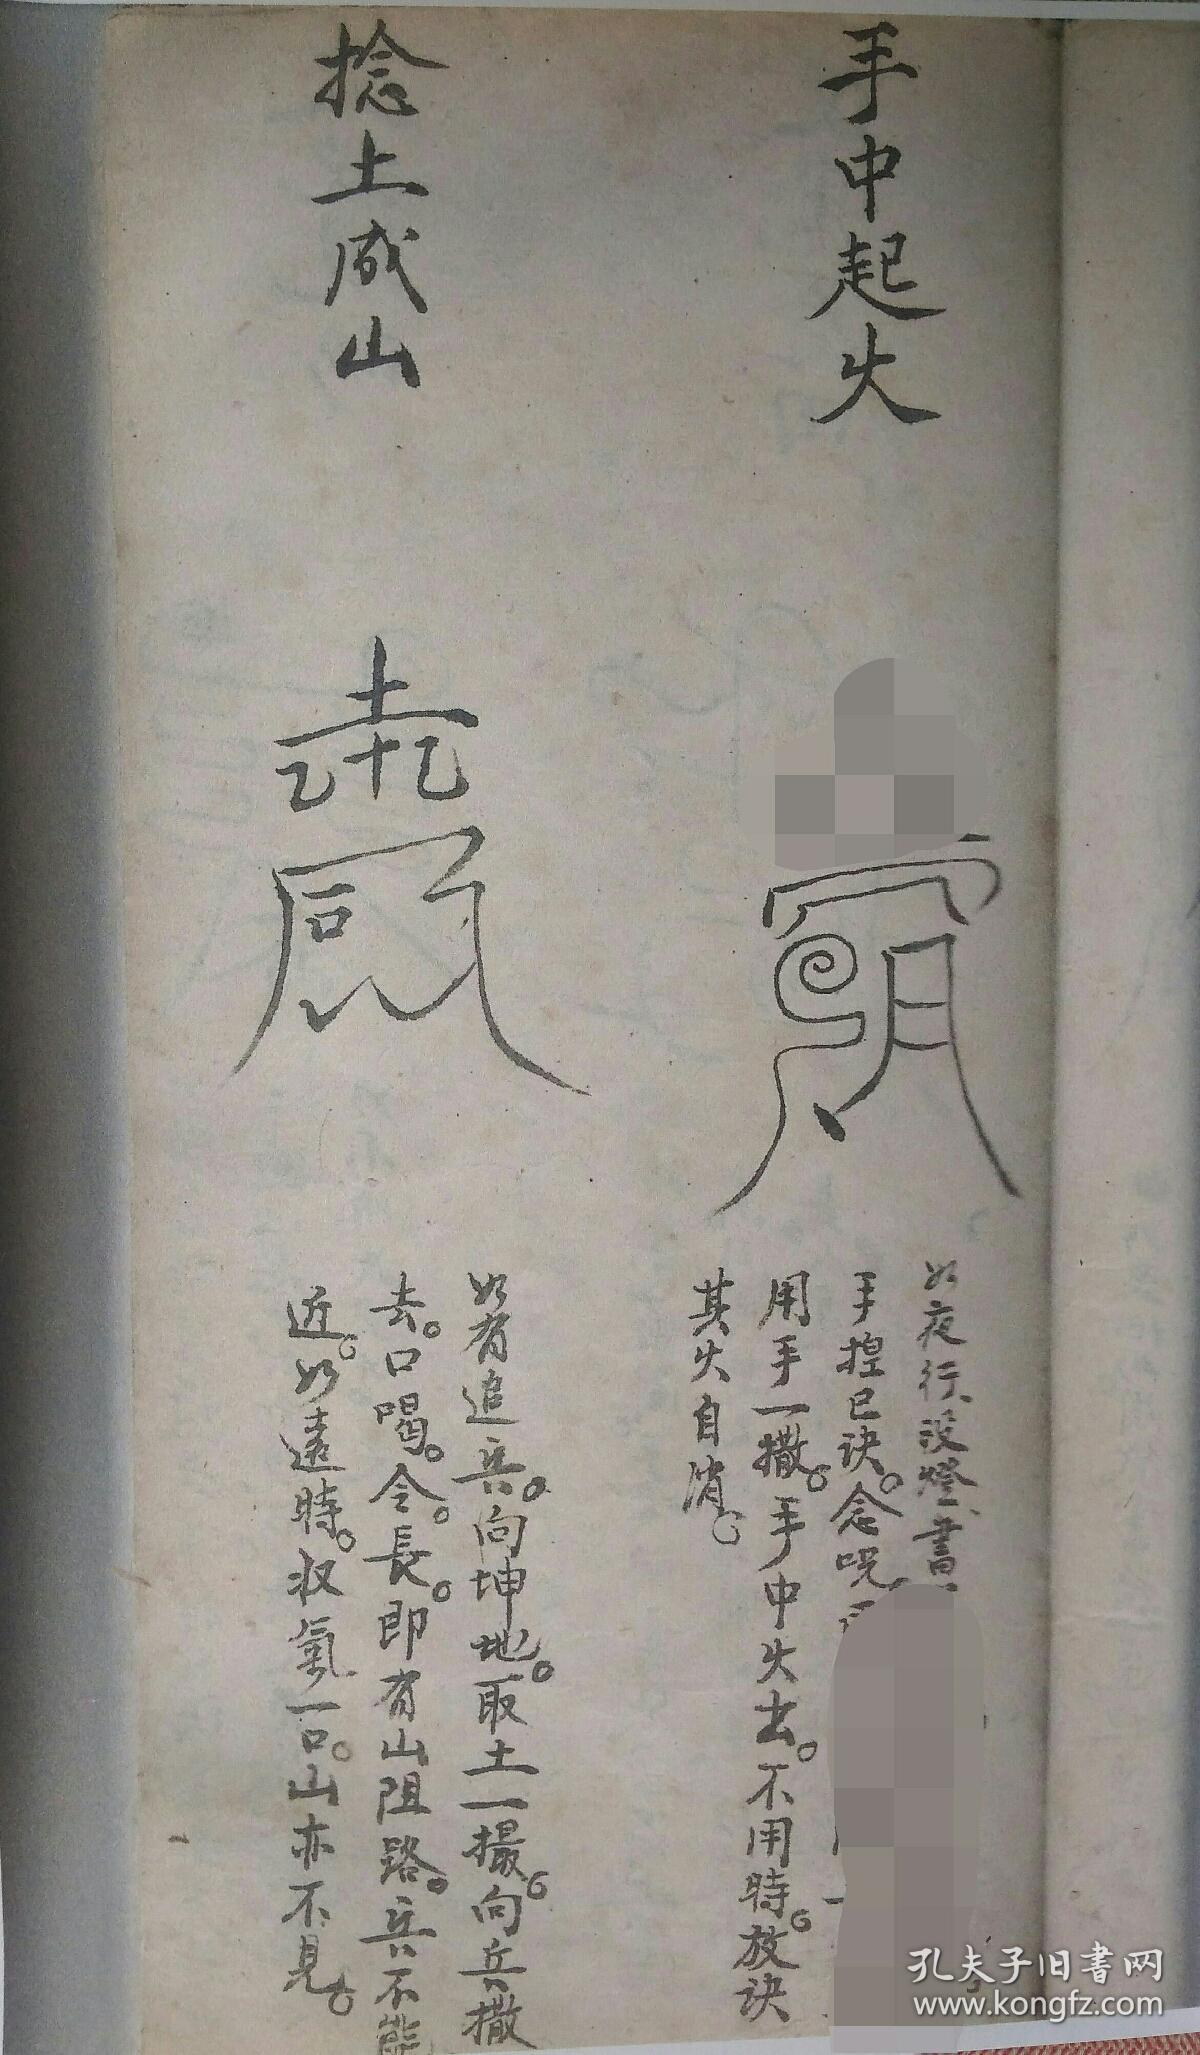 手中起火
如夜行没燈書
手捏巳诀念呪
用手一撒手中火去不用時放诀
其火自消
捻土成山
如有追兵向坤地取土一撮向兵撒
去口喝令長即有山阻路兵不能
近如遠時收氣一口山亦不見
孔夫子旧书网
www.kongfz.com